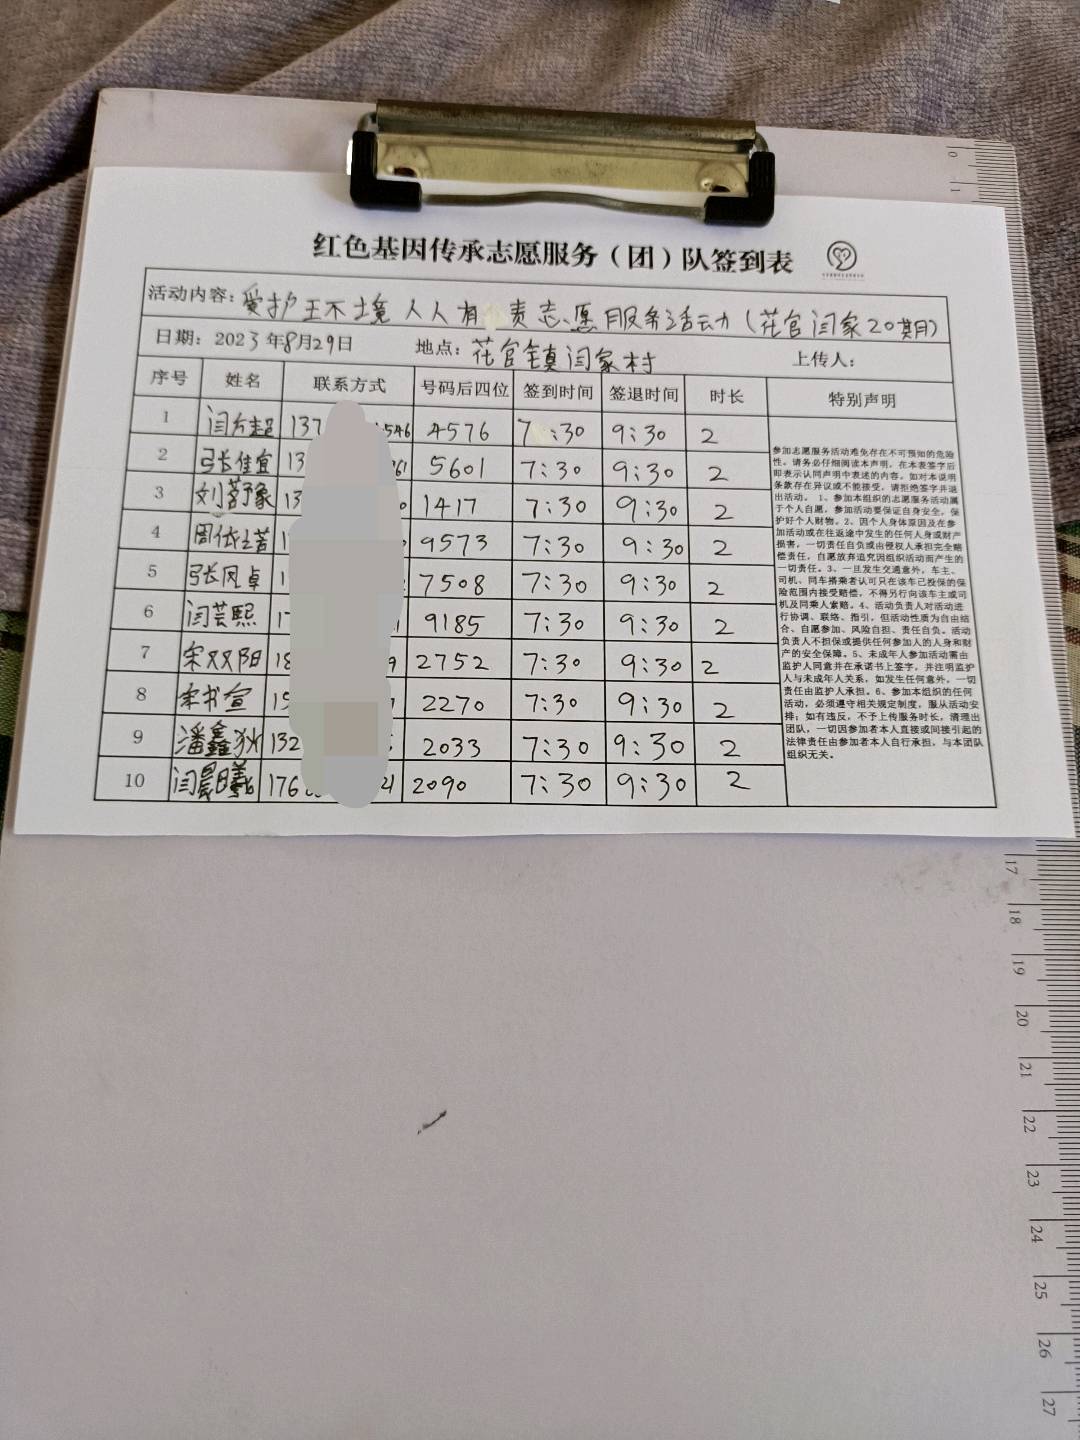 红色基因传承志愿服务（团）队签到表
活动内容：爱护环境 人人有责志愿服务活动（花官闫家20期）
日期：2023年8月29日 地点：花官镇闫家村 上传人：
序号 姓名 联系方式 号码后四位 签到时间 签退时间 时长 特别声明
1 闫方超 137 546 4576 7:30 9:30 2
2 张佳宜 13 61 5601 7:30 9:30 2
3 刘蕣豫 13 1417 7:30 9:30 2
4 周依诺 1 9573 7:30 9:30 2
5 张凤卓 1 7508 7:30 9:30 2
6 闫芸熙 17 1 9185 7:30 9:30 2
7 宋双阳 18 9 2752 7:30 9:30 2
8 李书宣 15 2270 7:30 9:30 2
9 潘鑫 132 2033 7:30 9:30 2
10 闫晨曦 176 1 2090 7:30 9:30 2
参加志愿服务活动难免存在不可预知的危险
性。请务必仔细阅读本声明，在本表签字后
即表示认同声明中表述的内容。如对本说明
条款存在异议或不能接受，请拒绝签字并退
出活动。1、参加本组织的志愿服务活动属
于个人自愿，参加活动要保证自身安全，保
护好个人财物。2、因个人身体原因及在参
加活动或在往返途中发生的任何人身或财产
损害，一切责任自负或由侵权人承担完全赔
偿责任，自愿放弃追究因组织活动而产生的
一切责任。3、一旦发生交通意外，车主、
司机、同车搭乘者认可只在该车已投保的保
险范围内接受赔偿，不得另行向该车主或司
机及同乘人索赔。4、活动负责人对活动进
行协调、联络、指引，但活动性质为自由结
合、自愿参加、风险自担、责任自负。活动
负责人不担保或提供任何参加人的人身和财
产的安全保障。5、未成年人参加活动需由
监护人同意并在承诺书上签字，并注明监护
人与未成年人关系，如发生任何意外，一切
责任由监护人承担。6、参加本组织的任何
活动，必须遵守相关规定制度，服从活动安
排；如有违反，不予上传服务时长，清理出
团队，一切因参加者本人直接或间接引起的
法律责任由参加者本人自行承担，与本团队
组织无关。
0
1
17
18
19
20
21
22
23
24
25
26
27